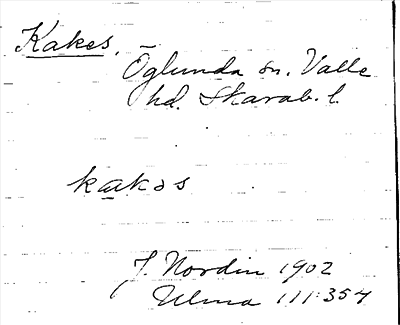 Kakes.
Öglunda sn. Valle
hd. Skarab. l.
kakəs
J. Nordin 1902
Ulma 111:354